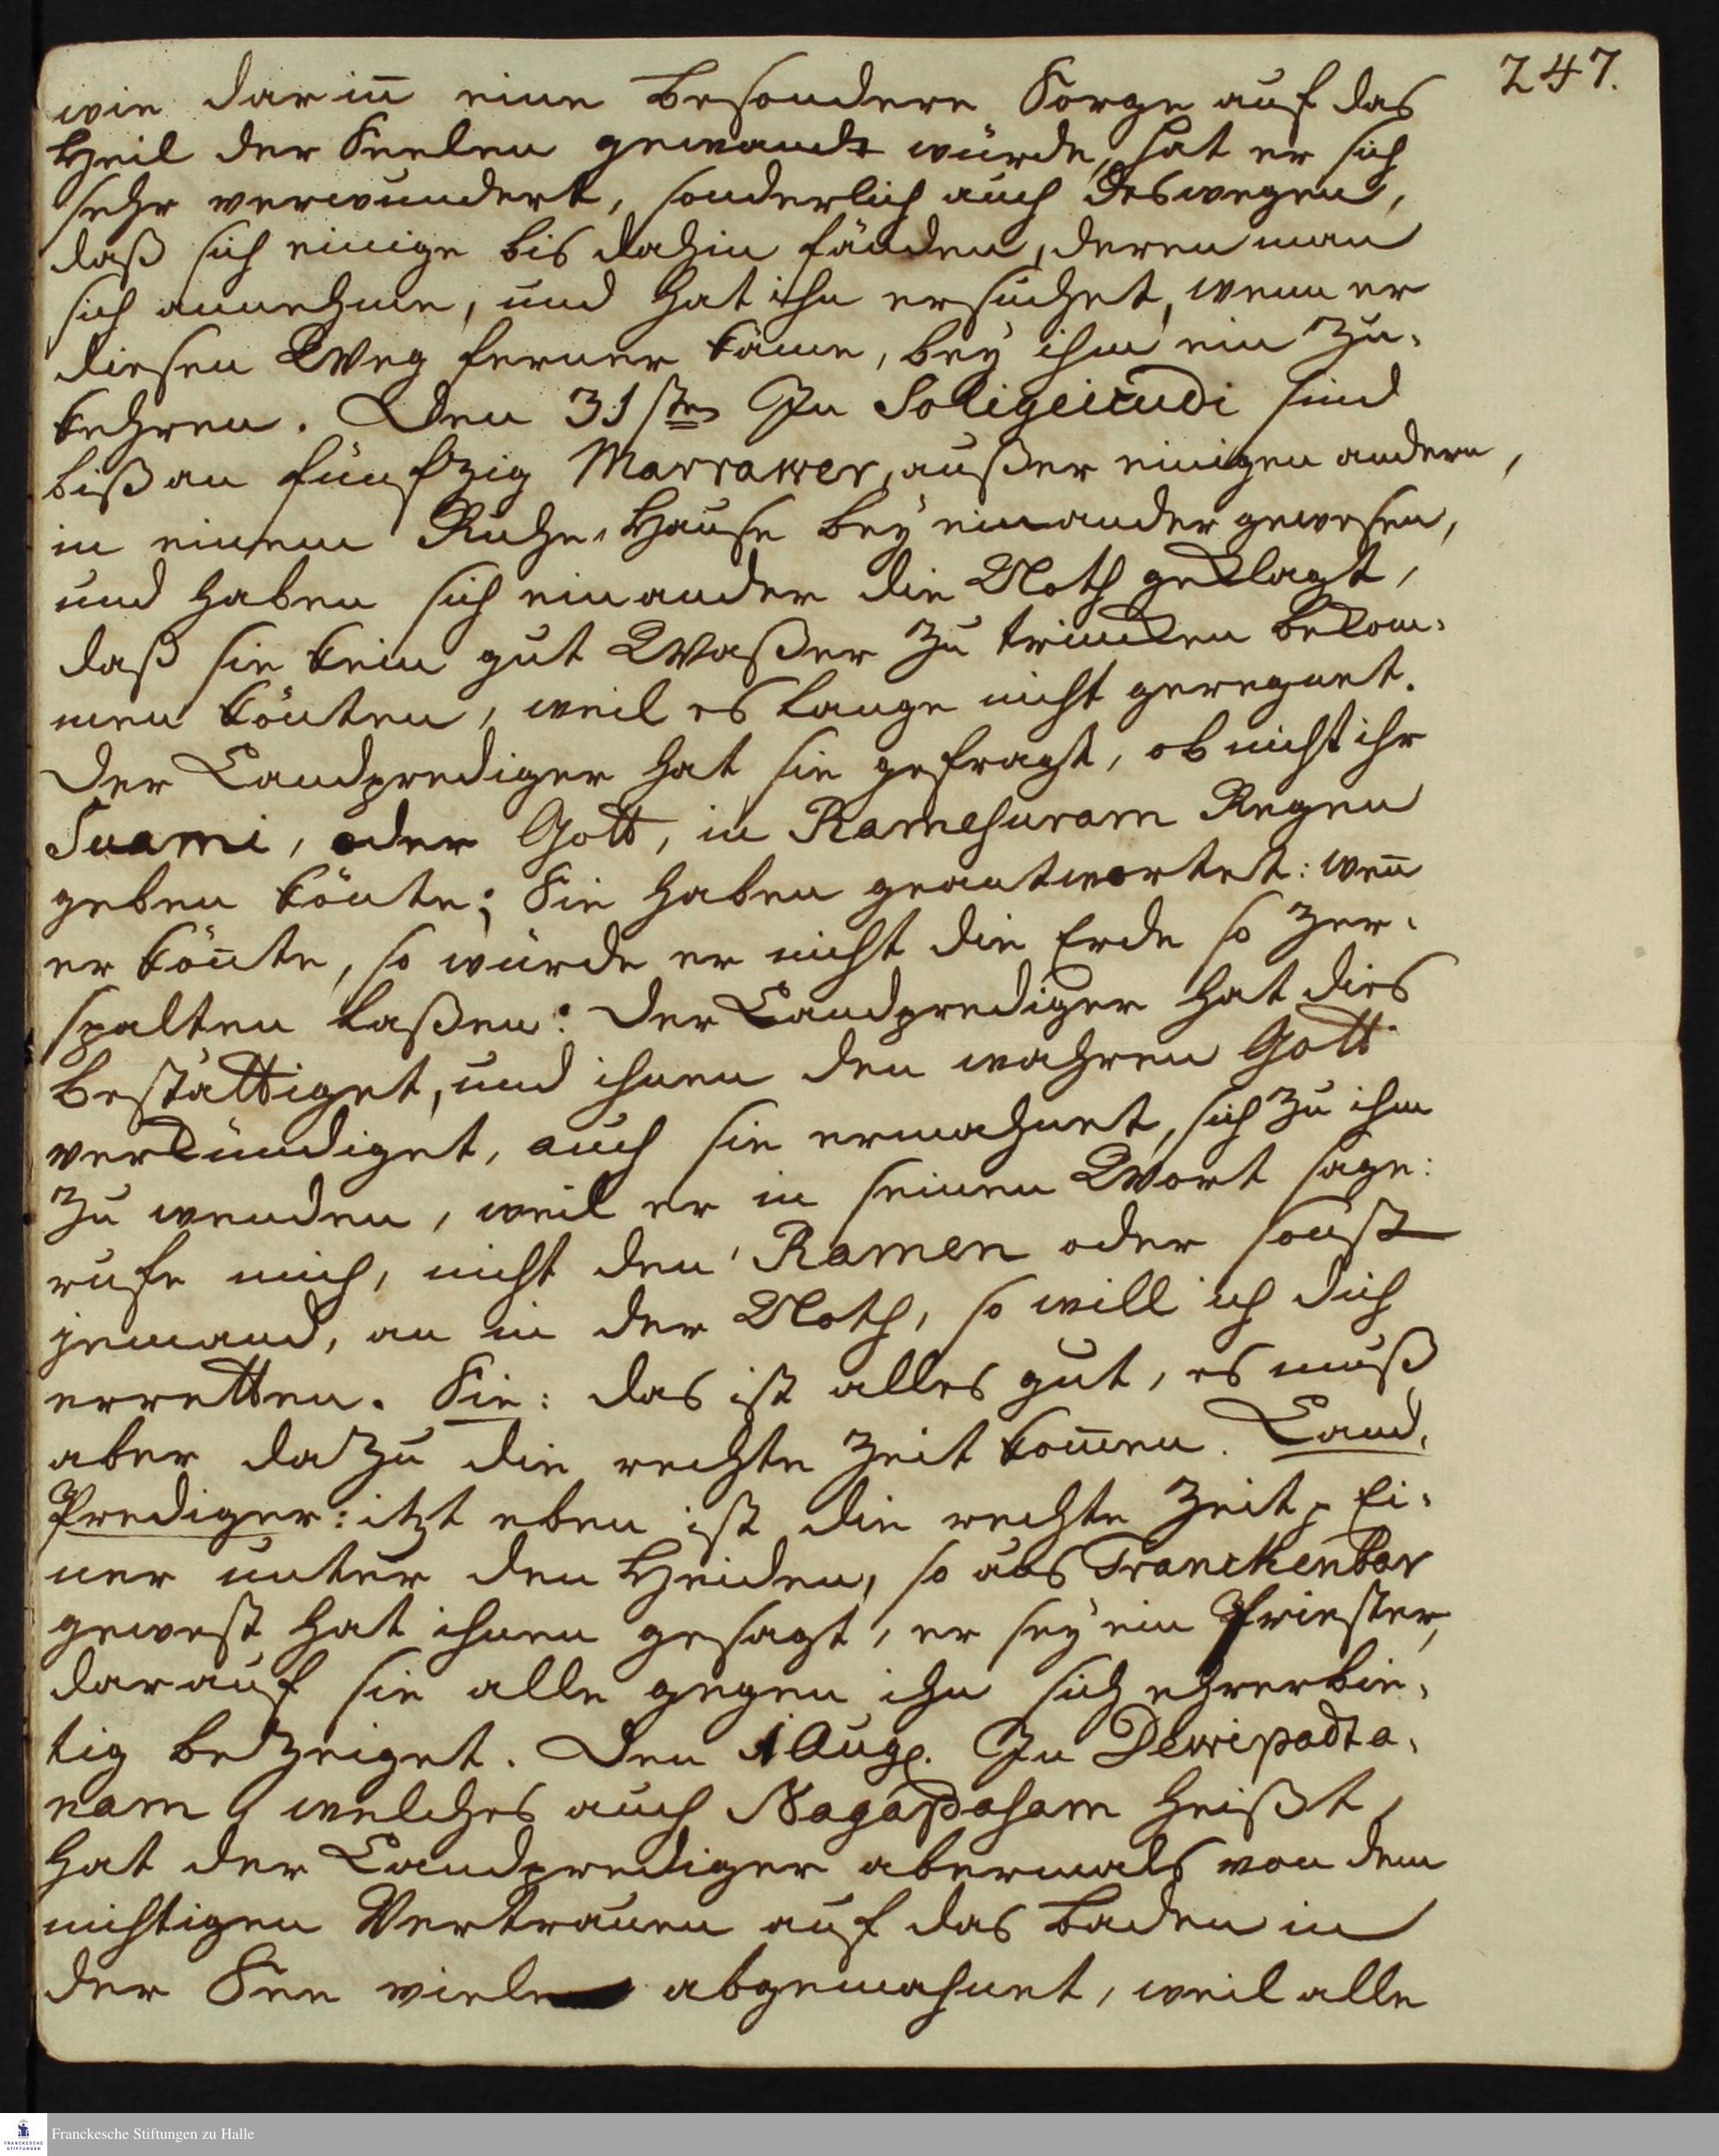 247.
wie darin̄ eine besondere Sorge auf das
Heil der Seelen gewandt würde, hat er sich
sehr verwundert, sonderlich auch deswegen,
daß sich einige bis dahin fänden, deren man
sich annehme, und hat ihn ersuchet, wenn er
diesen Weg ferner käme, bey ihm ein zu-
kehren. Den 31sten In Soligeicudi sind
biß an fünfzig Marrawer, außer einigen andern,
in einem Ruhe-Hause bey einander gewesen,
und haben sich einander die Noth geklagt,
daß sie kein gut Waßer zu trincken bekom-
men könten, weil es lange nicht geregnet.
Der Landprediger hat sie gefragt, ob nicht ihr
Suami, oder Gott, in Ramesuram Regen
geben könte; Sie haben geantwortet: wen̄
er kön̄te, so würde er nicht die Erde so zer-
spalten laßen: Der Landprediger hat dies
bestättiget, und ihnen den wahren Gott
verkündiget, auch sie ermahnet, sich zu ihm
zu wenden, weil er in seinen Wort sage:
rufe mich, nicht den Ramen oder sonst
jemand, an in der Noth, so will ich dich
erretten. Sie: das ist alles gut, es muß
aber dazu die rechte Zeit kom̄en. Land-
Prediger: itzt eben ist die rechte Zeit. Ei-
ner unter den Heiden, so aus Tranckenbar
gewest hat ihnen gesagt, er sey ein Priester,
darauf sie alle gegen ihn sich ehrerbie-
tig bezeiget. Den 1 Aug. In Dewipadta-
nam, welches auch Nagapasam heißt,
hat der Landprediger abermals von dem
nichtigen Vertrauen auf das Baden in
der See viele abgemahnet, weil alle
Franckesche Stiftungen zu Halle
FRANCKESCHE
STIFTUNGEN